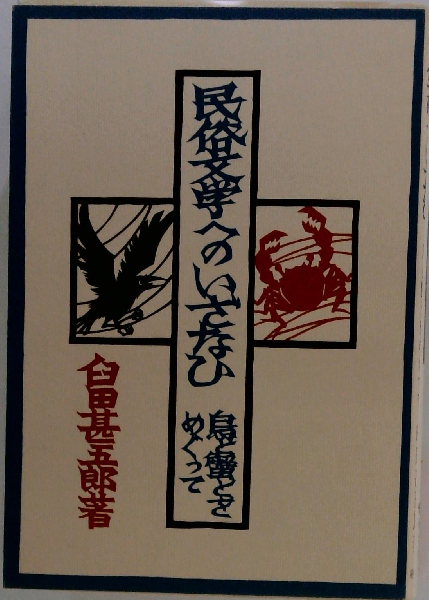 民俗文学へのいざなひ
烏と蟹とを
めぐって
臼田甚五郎著